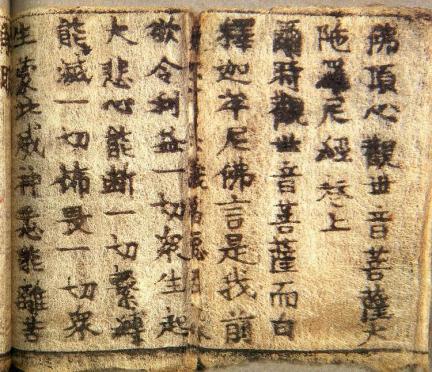 佛頂心觀世音菩薩大
陁羅尼經卷上
爾時觀世音菩薩而白
釋迦牟尼佛言是我前
欲令利益一切衆生起
大悲心能斷一切繫縛
能滅一切怖畏一切衆
生蒙此威神悉能離苦